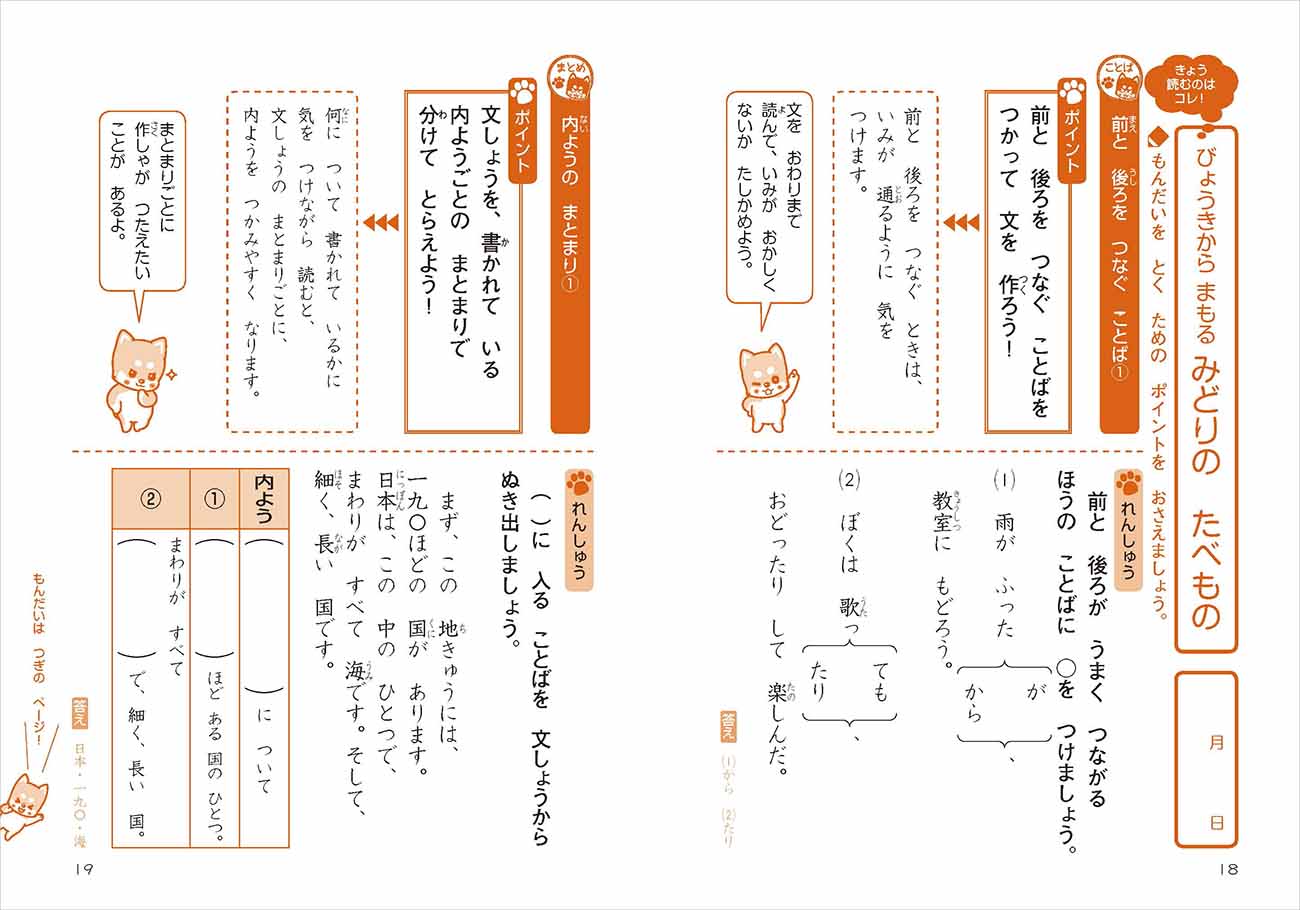 きょう
読むのは
コレ！
びょうきから まもる みどりの たべもの
月 日
もんだいを とく ための ポイントを おさえましょう。
ことば
前と 後ろを つなぐ ことば①
まえ うし
ポイント
前と 後ろを つなぐ ことばを
つかって 文を 作ろう！
つく
前と 後ろを つなぐ ときは、
いみが 通るように 気を
とお
つけます。
文を おわりまで
読んで、いみが おかしく
よ
ないか たしかめよう。
れんしゅう
前と 後ろが うまく つながる
ほうの ことばに ○を つけましょう。
(1) 雨が ふった
が
から
、
教室に もどろう。
きょうしつ
(2) ぼくは 歌っ
うた
ても
たり
、
おどったり して 楽しんだ。
たの
答え (1)から (2)たり
18
まとめ
内ようの まとまり①
ない
ポイント
文しょうを、書かれて いる
か
内ようごとの まとまりで
分けて とらえよう！
わ
何に ついて 書かれて いるかに
なに
気を つけながら 読むと、
文しょうの まとまりごとに、
内ようを つかみやすく なります。
まとまりごとに
作しゃが つたえたい
さく
ことが あるよ。
れんしゅう
( )に 入る ことばを 文しょうから
ぬき出しましょう。
まず、この 地きゅうには、
ち
一九〇ほどの 国が あります。
くに
日本は、この 中の ひとつで、
にっぽん
まわりが すべて 海です。そして、
うみ
細く、長い 国です。
ほそ なが
内よう
( )に ついて
①
( )ほど ある 国の ひとつ。
②
まわりが すべて
( )で、細く、長い 国。
答え 日本・一九〇・海
もんだいは つぎの ページ！
19